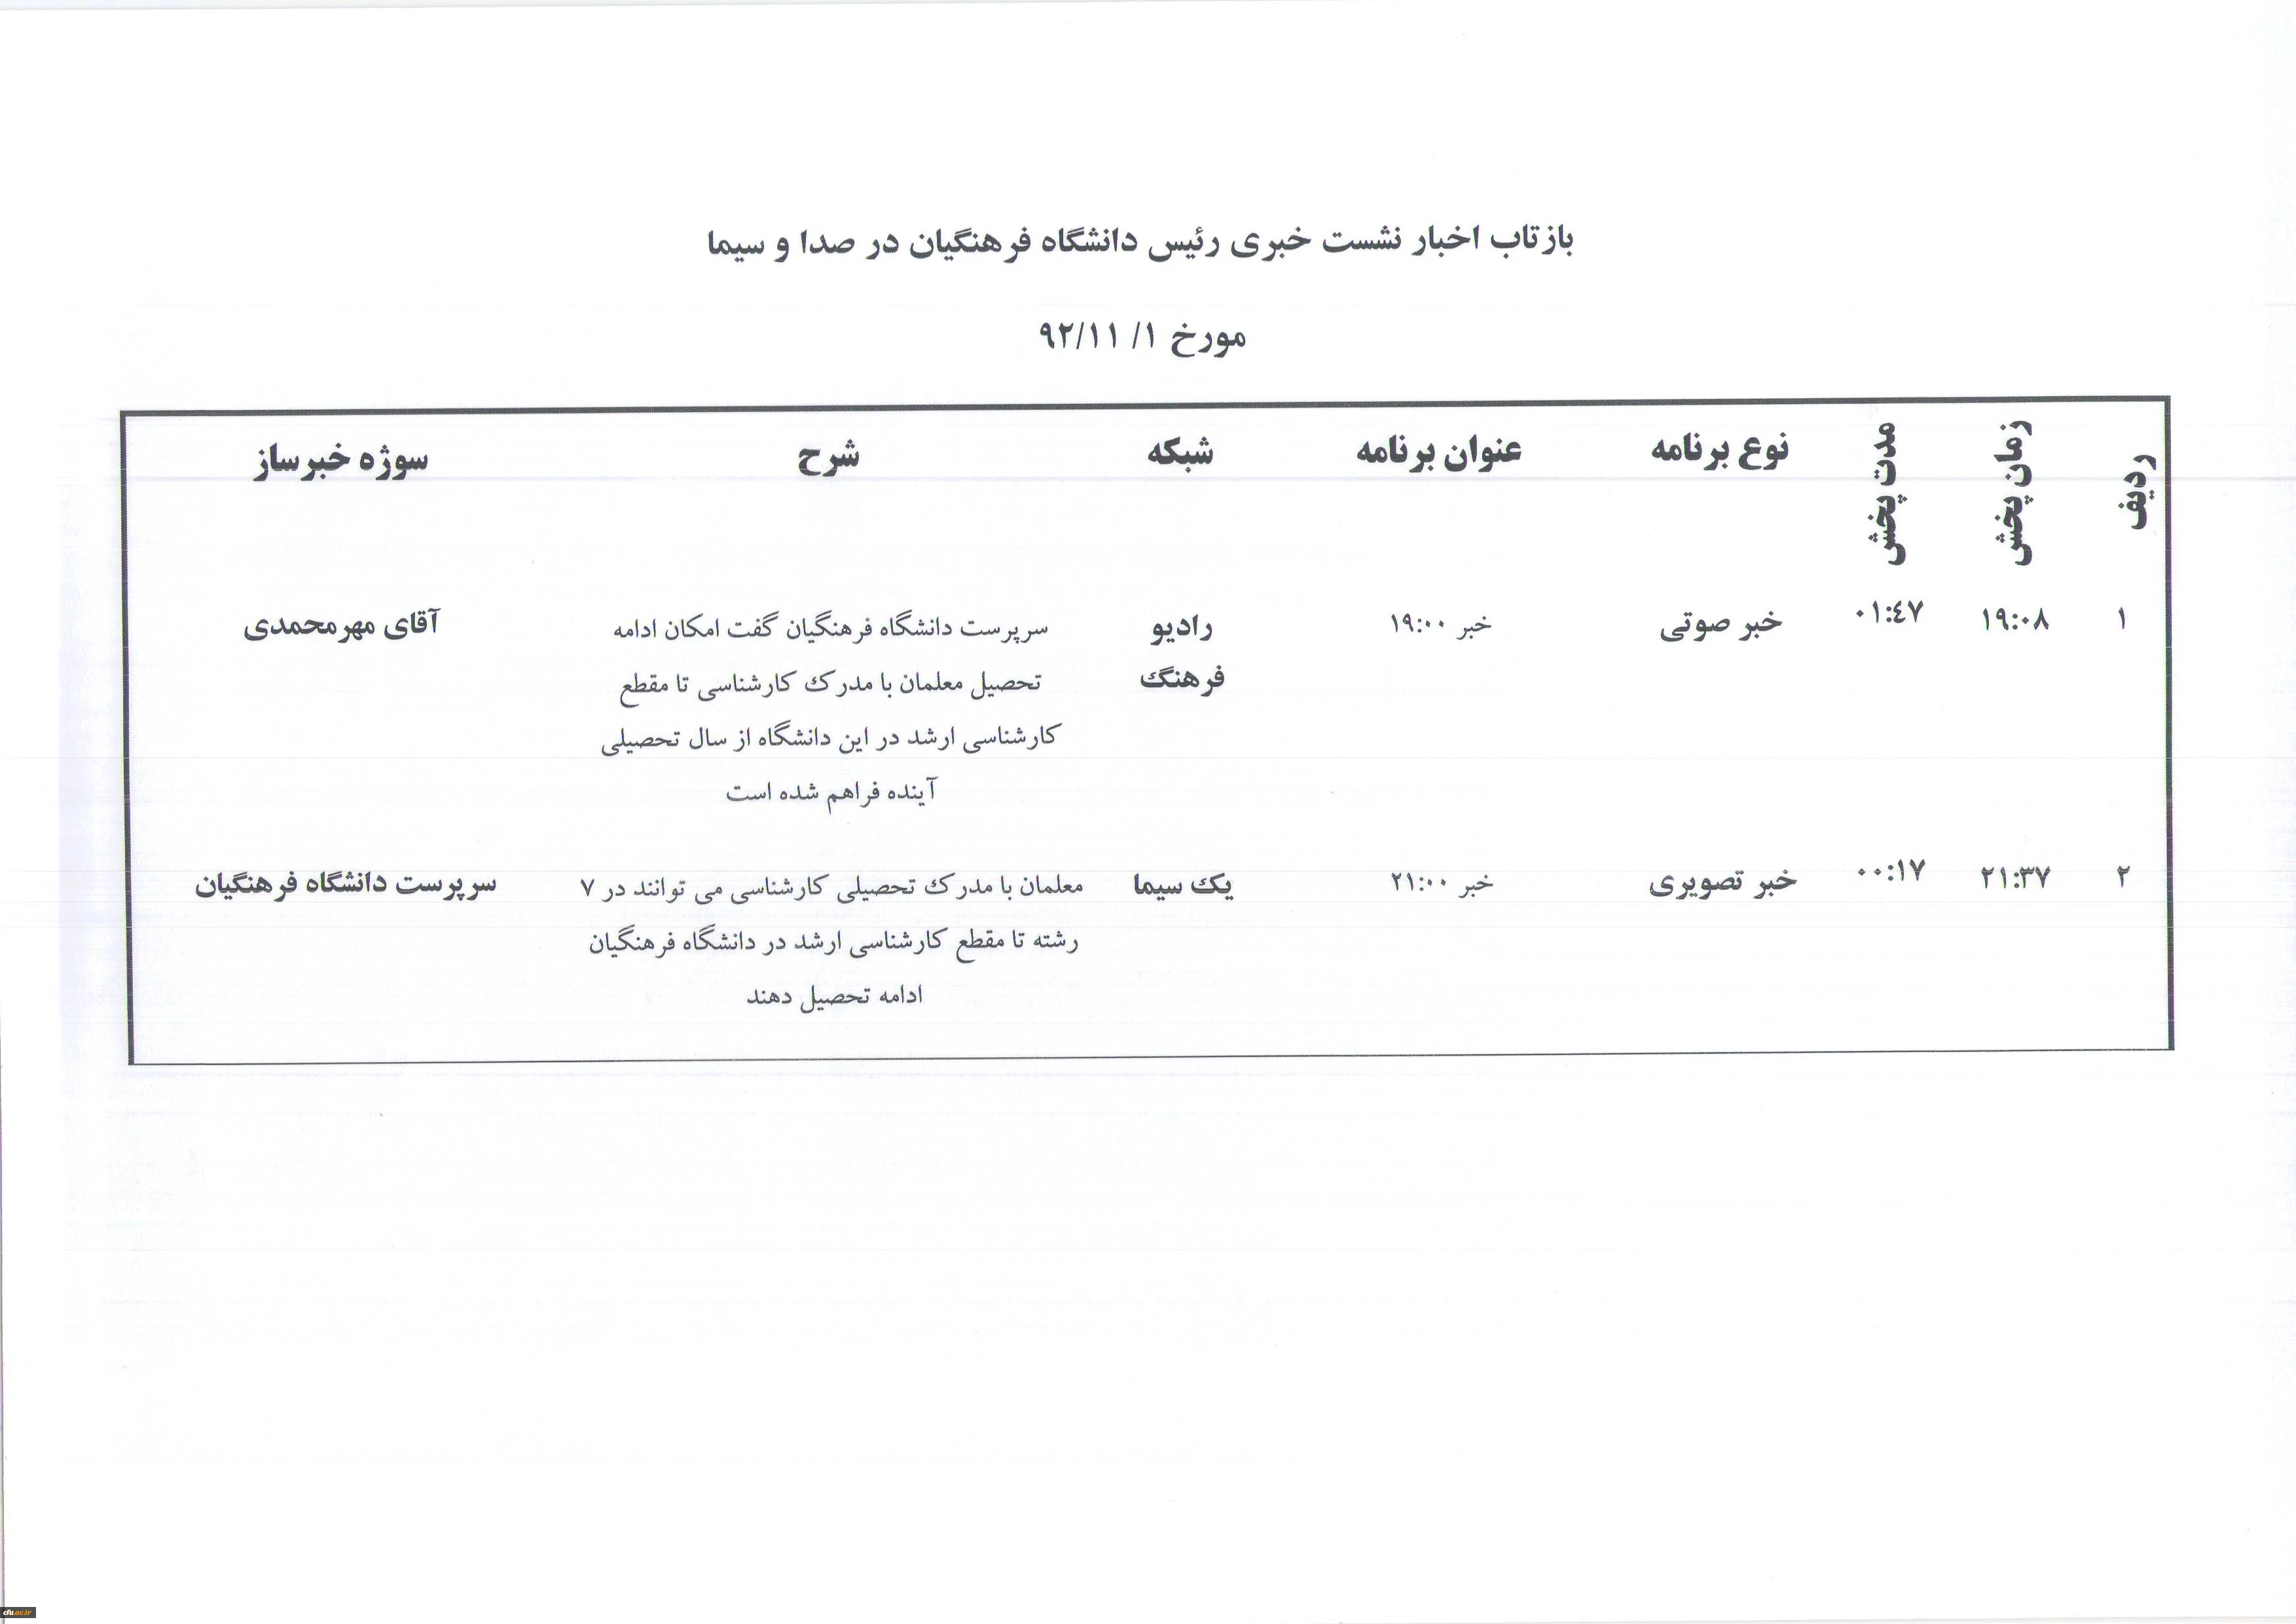 بازتاب اخبار نشست خبری رئیس دانشگاه فرهنگیان در صدا و سیما
مورخ ۱/ ۹۲/۱۱
ردیف
زمان پخش
مدت پخش
نوع برنامه
عنوان برنامه
شبکه
شرح
سوژه خبرساز
۱
۱۹:۰۸
۰۱:٤۷
خبر صوتی
خبر ۱۹:۰۰
رادیو
فرهنگ
سرپرست دانشگاه فرهنگیان گفت امکان ادامه
تحصیل معلمان با مدرک کارشناسی تا مقطع
کارشناسی ارشد در این دانشگاه از سال تحصیلی
آینده فراهم شده است
آقای مهرمحمدی
۲
۲۱:۳۷
۰۰:۱۷
خبر تصویری
خبر ۲۱:۰۰
یک سیما
معلمان با مدرک تحصیلی کارشناسی می توانند در ۷
رشته تا مقطع کارشناسی ارشد در دانشگاه فرهنگیان
ادامه تحصیل دهند
سرپرست دانشگاه فرهنگیان
cfu.ac.ir